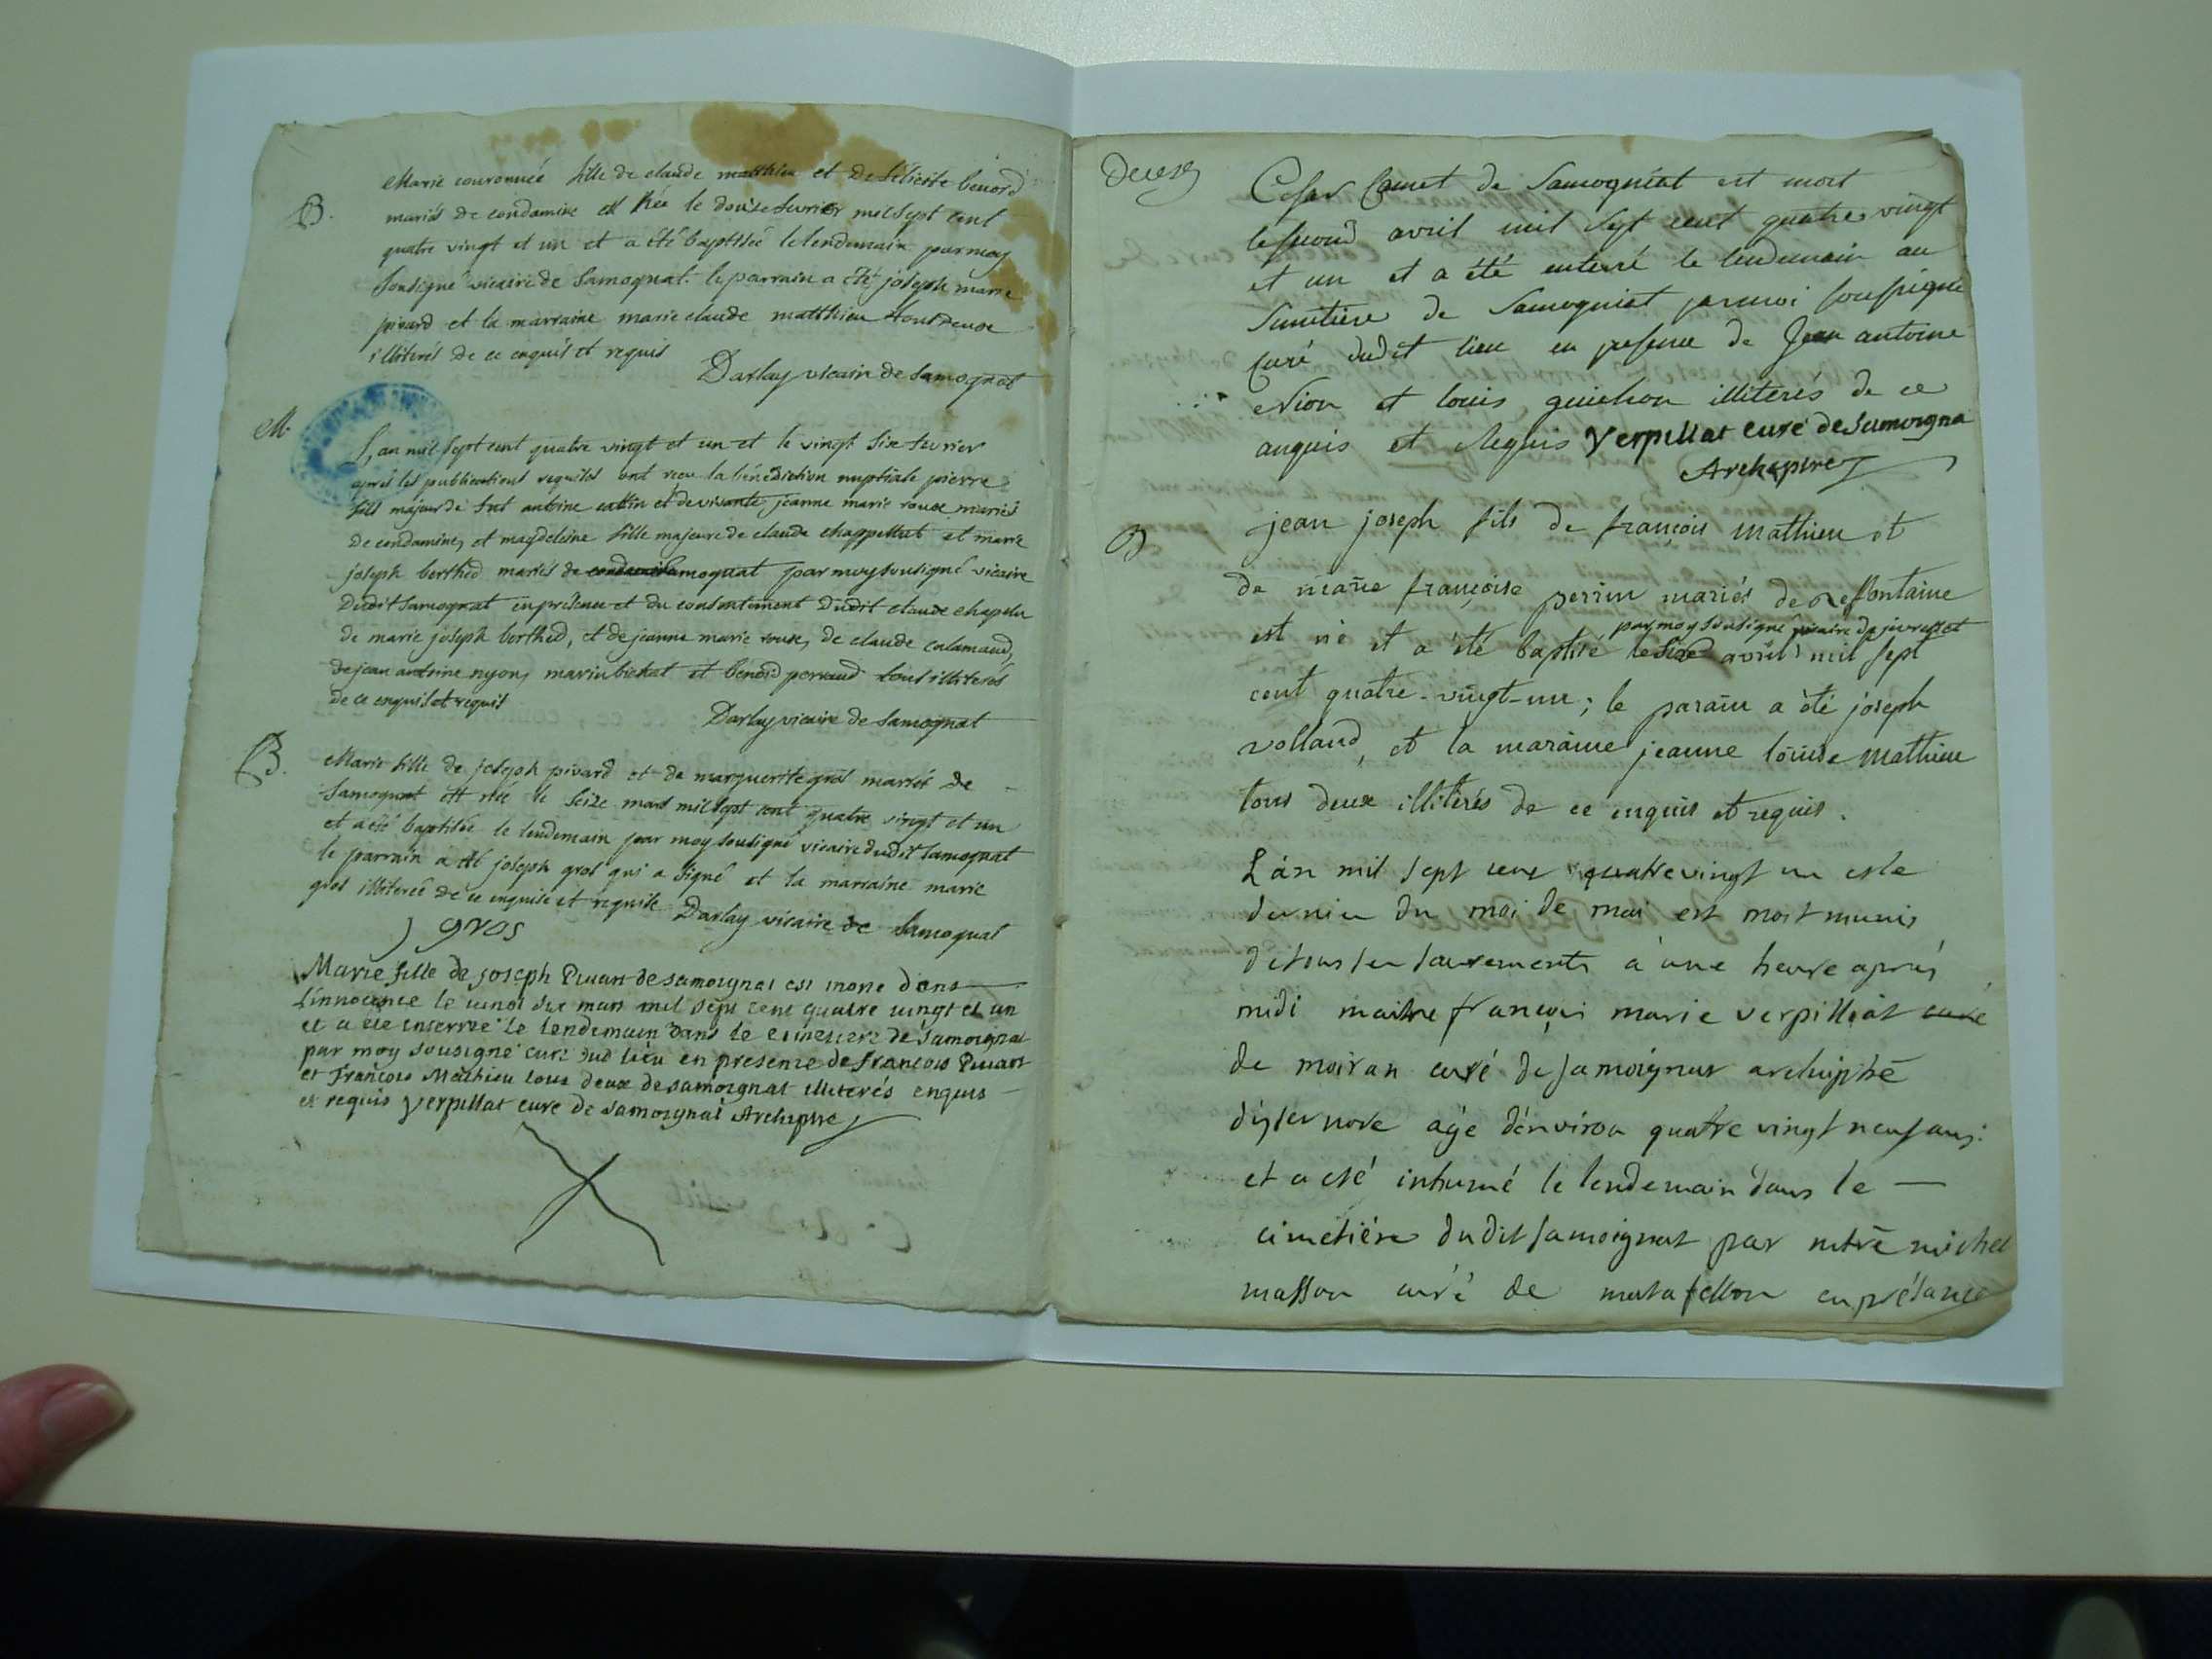 Marie couronnée fille de claude matthieu et de félicité benord
B.
mariés de condamine est née le douze fevrier mil sept cent
quatre vingt et un et a été baptisée le lendemain par moy
sousigné vicaire de Samognat. le parrain a été joseph marie
pivard et la marraine marie claude matthieu tout deux
illiterés de ce enquis et requis
Darlay vicaire de Samognat
M.
L'an mil sept cent quatre vingt et un et le vingt six fevrier
après les publications requises ont reçu la bénédiction nuptiale pierre
fils majeur de fut antoine cattin et de vivante jeanne marie rouse mariés
de condamine, et magdeleine fille majeure de claude chappellut et marie
joseph berthed mariés de samognat par moy sousigné vicaire
dudit samognat en présence et du consentement dudit claude chapelu
de marie joseph berthed, et de jeanne marie rouse, de claude calamand,
de jean antoine nyon, marin bichat et benoid perraud tous illiterés
de ce enquis et requis
Darlay vicaire de Samognat
B.
Marie fille de joseph pivard et de marguerite gros mariés de
Samognat est née le seize mars mil sept cent quatre vingt et un
et a été baptisée le lendemain par moy sousigné vicaire dudit Samognat
le parrain a été joseph gros qui a signé et la marraine marie
gros illiterée de ce enquise et requise Darlay vicaire de Samognat
J gros
Marie fille de joseph Pivart de samoignat est morte dans
l'innocence le vingt six mars mil sept cent quatre vingt et un
et a été enterrée le lendemain dans le cimetiere de samoignat
par moy sousigné curé dud lieu en presence de françois Pivart
et françois Mathieu tous deux de samoignat illiterés enquis
et requis verpillat curé de samoignat Archiptre
Deces
Cesar Comet de Samogniat est mort
le second avril mil sept cent quatre vingt
et un et a été enterré le lendemain au
Simetiere de Samogniat par moi soussigné
Curé dudit lieu en presence de Jean antoine
Nion et louis guichon illiterés de ce
anquis et Requis verpillat curé de Samoigna
Archiptre
B
jean joseph fils de françois Mathieu et
de marie françoise perrin mariés de Neffontaine
par moy sousigné vicaire de
est né et a été baptisé le six avril mil sept
cent quatre-vingt-un; le parain a été joseph
volland, et la maraine jeanne louise Mathieu
tous deux illitérés de ce enquis et requis.
L'an mil sept cent quatre vingt un et le
dernier du moi de mai est mort munis
de tous les sacrements à une heure aprés
midi maitre françois marie verpilliat curé
de moiran curé de samoignat archiptrē
d'izernore agé d'environ quatre vingt neuf ans
et a eté inhumé le lendemain dans le
cimetiére dudit samoignat par mtrē michel
masson curé de matafellon en présance